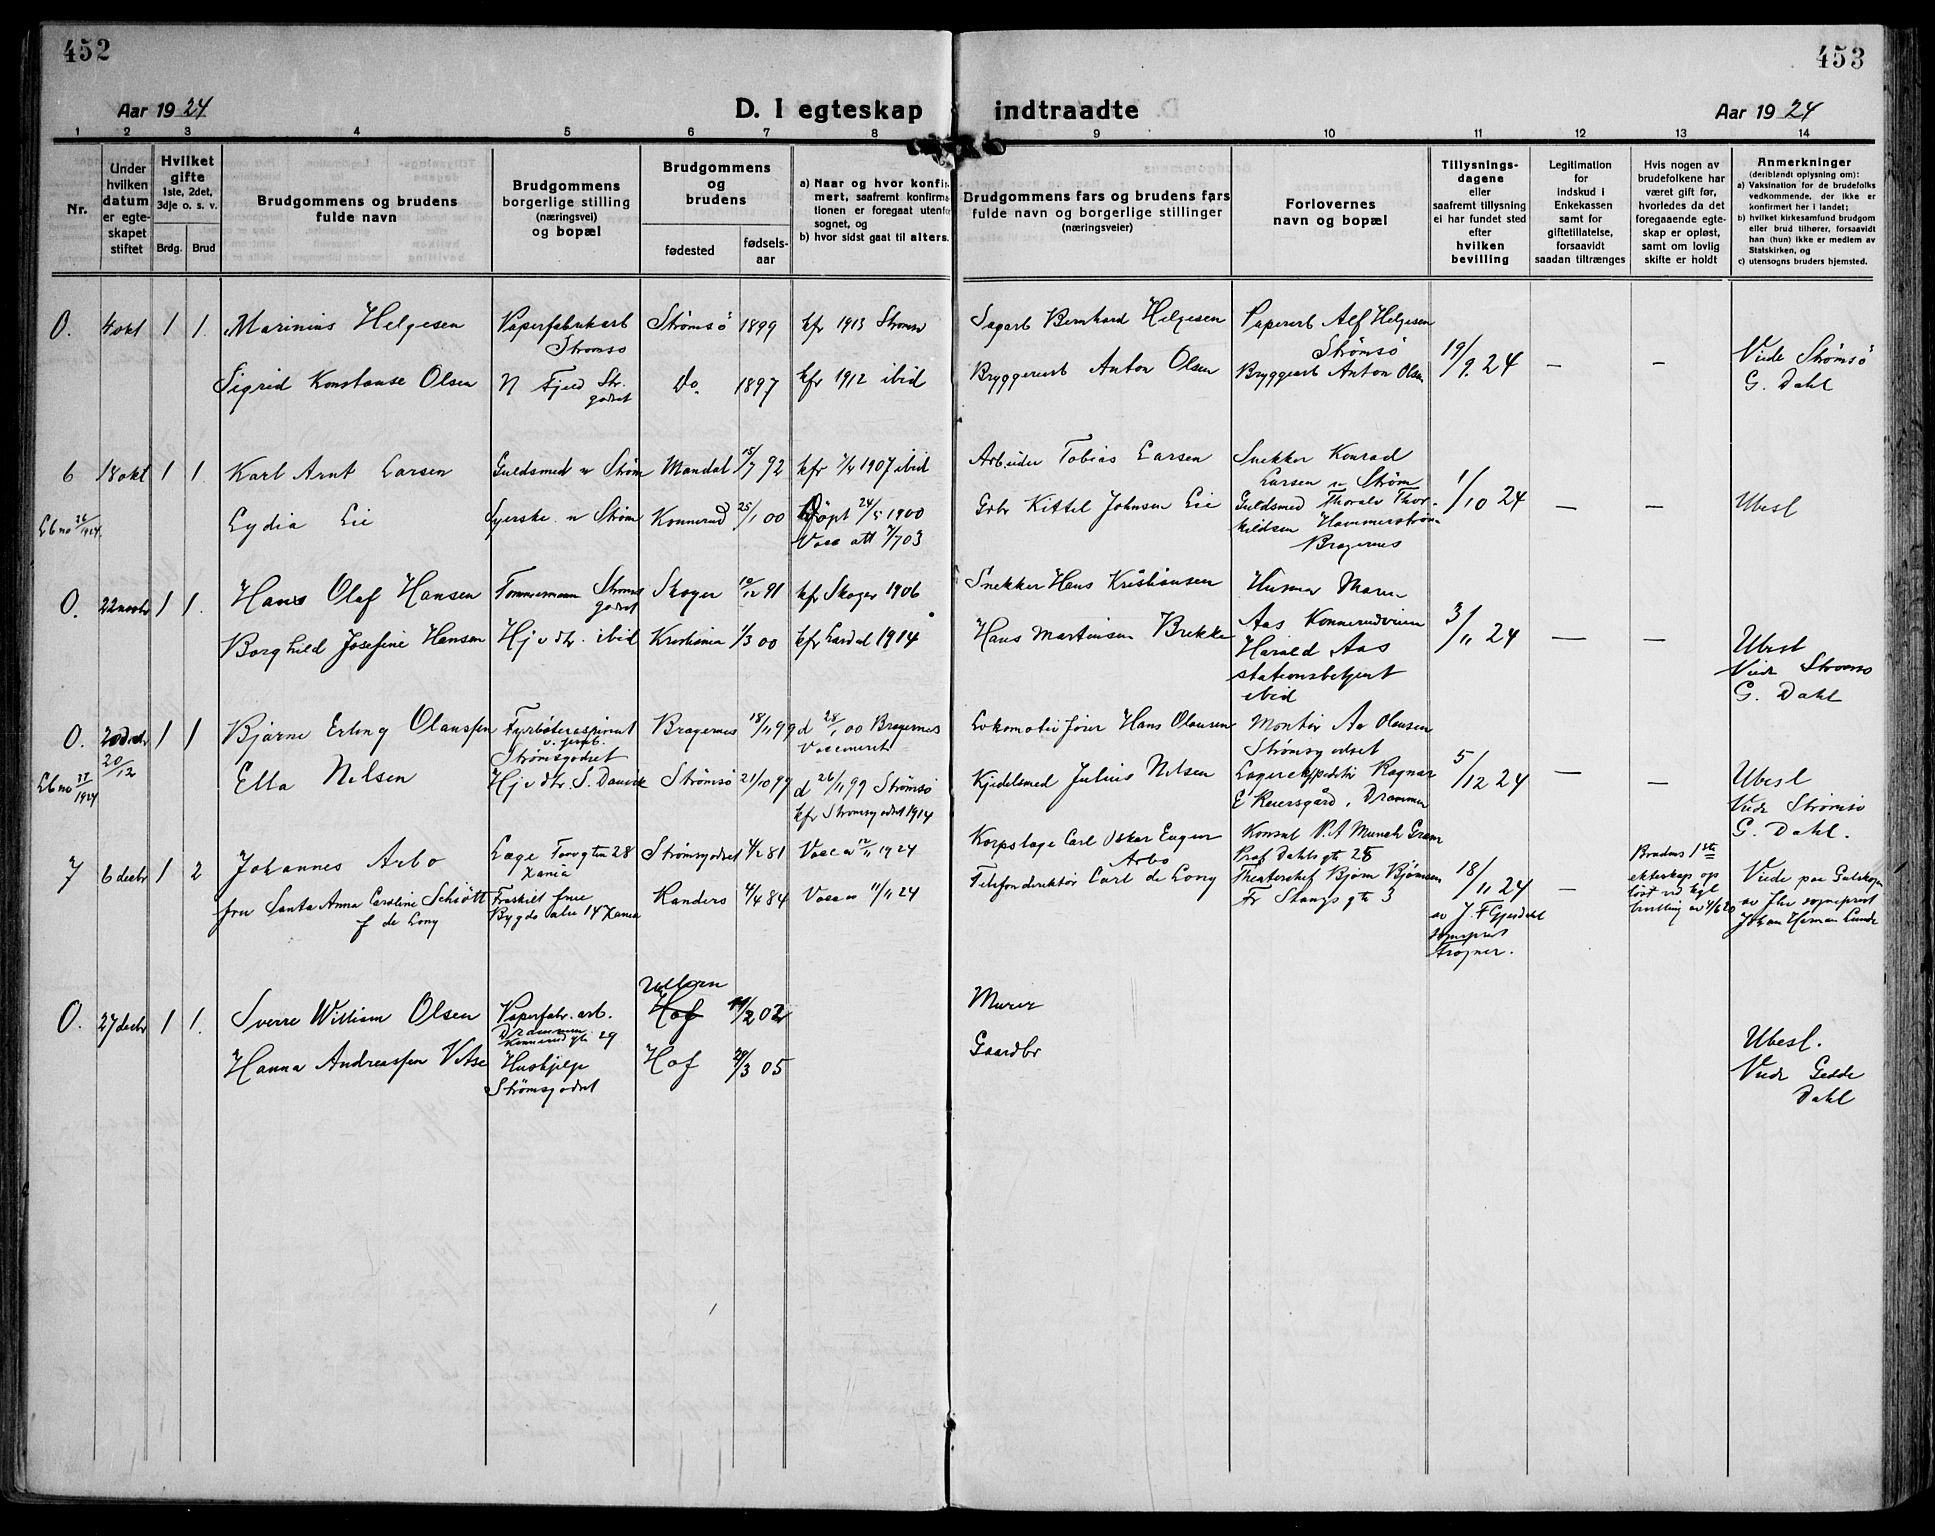 452
453
Aar 1924
D. I egteskap indtraadte
Aar 1924
1 2 3 4 5 6 7 8 9 10 11 12 13 14
Nr.
Under hvilken datum er egteskapet stiftet
Hvilket gifte 1ste, 2det, 3dje o. s. v.
Brdg. Brud
Brudgommens og brudens fulde navn
Brudgommens borgerlige stilling (næringsvei) og bopæl
Brudgommens og brudens
fødested
fødsels-aar
a) Naar og hvor konfirmert, saafremt konfirmationen er foregaat utenfor sognet, og
b) hvor sidst gaat til alters.
Brudgommens fars og brudens fars fulde navn og borgerlige stillinger (næringsveier)
Forlovernes navn og bopæl
Tillysningsdagene eller saafremt tillysning ei har fundet sted efter hvilken bevilling
Legitimation for indskud i Enkekassen samt for giftetillatelse, forsaavidt saadan tiltrænges
Hvis nogen av brudefolkene har været gift før, hvorledes da det foregaaende egteskap er opløst, samt om lovlig skifte er holdt
Anmerkninger (deriblandt oplysning om):
a) Vaksination for de brudefolks vedkommende, der ikke er konfirmert her i landet;
b) hvilket kirkesamfund brudgom eller brud tilhører, forsaavidt han (hun) ikke er medlem av Statskirken, og
c) utensogns bruders hjemsted.
0. 4 okt 1 1. Marinius Helgesen Papirfabrikarb Strømsø Strømsø 1899 kfr 1913 Strømsø Sagarb Bernhard Helgesen Papirarb Alf Helgesen Strømsø
Sigrid Konstanse Olsen N Fjeld Str. godset Do 1897 kfr 1912 ibid Bryggeriarb Anton Olsen Bryggearb Anton Olsen 19/9 24 — — Viede Strømsø G. Dahl
6 18 okt 1 1. Karl Arnt Larsen Guldsmed n Strøm Mandal 15/7 92 kfr 1907 ibid Arbeider Tobias Larsen Snekker Konrad Larsen n Strøm
Lb no 26/1924. Lydia Lie Syerske n Strøm Konnerud 25/1 00 Døpt 24/5 1900 Vacc att 7/7 03 Gbr Kittel Johnsen Lie Guldsmed Thoralv Thorkildsen Hammerstrøm Bragernes 1/10 24 — — Ubesl
0. 22 novbr 1 1. Hans Olaf Hansen Tømmermann Strømsgodset Skoger 10/12 91 kfr Skoger 1906 Snekker Hans Kristiansen Maren Aas Konnerudveien
Borghild Josefine Hansen Hj v dr. ibid Kristiania 1/3 00 kfr Lardal 1914 Hans Martinsen Brekke Harald Aas stationsbetjent ibid 3/11 24 — — Ubesl Viede Strømsø G. Dahl
0. 20 decbr 20/12 1 1 Bjarne Erling Olaussen Fyrbøteraspirant v. jernb. Strømsgodset Bragernes 18/11 99 d 28/1 00 Bragernes Vaccineret Lokomotivfører Hans Olausen Montør Aa Olausen Strømsgodset
Lb no 31/1924 Ella Nilsen Hj v dr. S. Danvik Strømsø 21/10 99 d 26/11 99 Strømsø kfr Strømsgodset 1914 Kjedelsmed Julius Nilsen Lagerekspeditør Ragnar E Reiersgård, Drammen 5/12 24 — — Ubesl Viede Strømsø G. Dahl.
7 6 decbr 1 2 Johannes Arbo Læge Torvgtn 28 Xania Strømsgodset 4/2 81 Vacc 12/11 1924 Korpslæge Carl Oskar Eugen Arbo Konsul P. A Munch Gram Prof Dahlsgt 28
fru Santa Anna Caroline Schiøtt f de Lony Fraskilt frue Bygdø Alle 14 Xania Randers 4/4 84 Vacc 11/11 24 Telefondirektør Carl de Lony Theaterchef Bjørn Bjørnson Fr Stangs gt 3 18/11 24 av J. F Gjesdahl sogneprest Frogner. — Brudens 1ste ekteskap opløst v Kgl bevilling av 4/6 20 Viede paa Gulskogen av Hr sogneprest Johan Herman Lunde
0. 27 decbr 1 1. Sverre William Olsen Papirfabr. arb. Drammen Konnerud gt 29 Hof 11/2 02 Murer
Hanna Andreassen Hushjelp Strømsgodset Hof 29/3 05 Gaardbr Ubesl. Viede Gedde Dahl